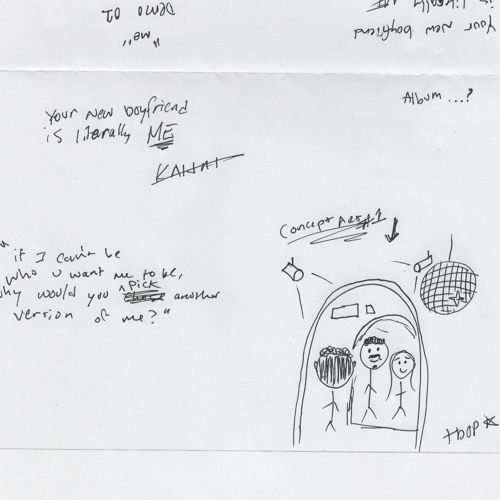 "me"
DEMO 02
Your new boyfriend
is literally
Album ...?
Your new boyfriend
is literally ME
Concept Art #1
"if I can't be
who u want me to be,
why would you pick another
version of me?"